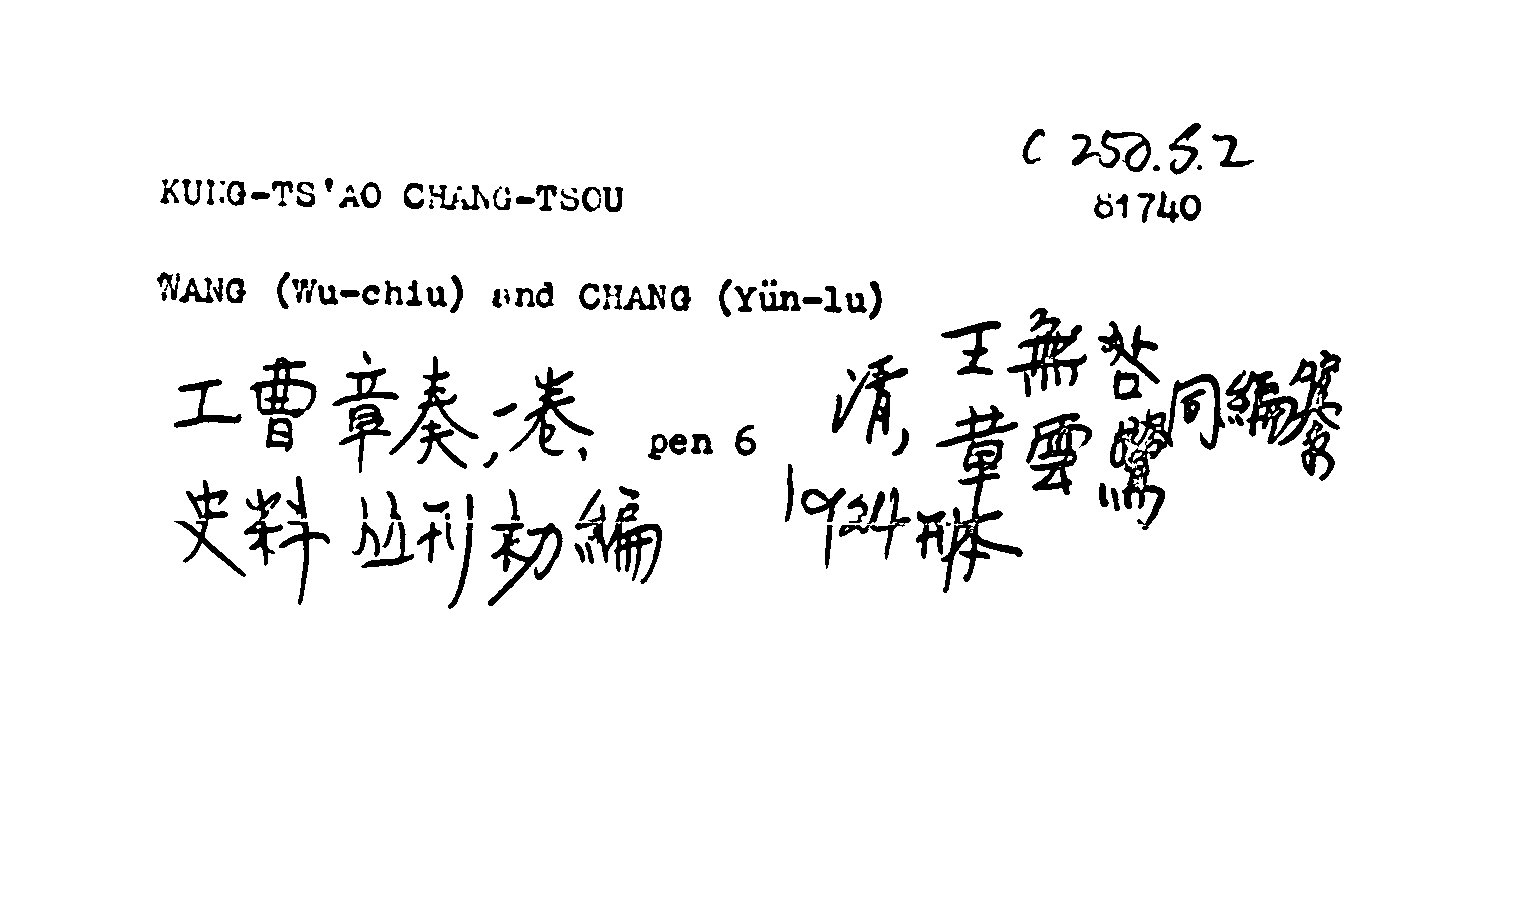 C 250.5.2
KUNG-TS'AO CHANG-TSOU
81740
WANG (Wu-chiu) and CHANG (Yün-lu)
工曹章奏,一卷, pen 6 清, 王無咎 章雲鷺 同編纂
史料丛刊初編 1924刊本